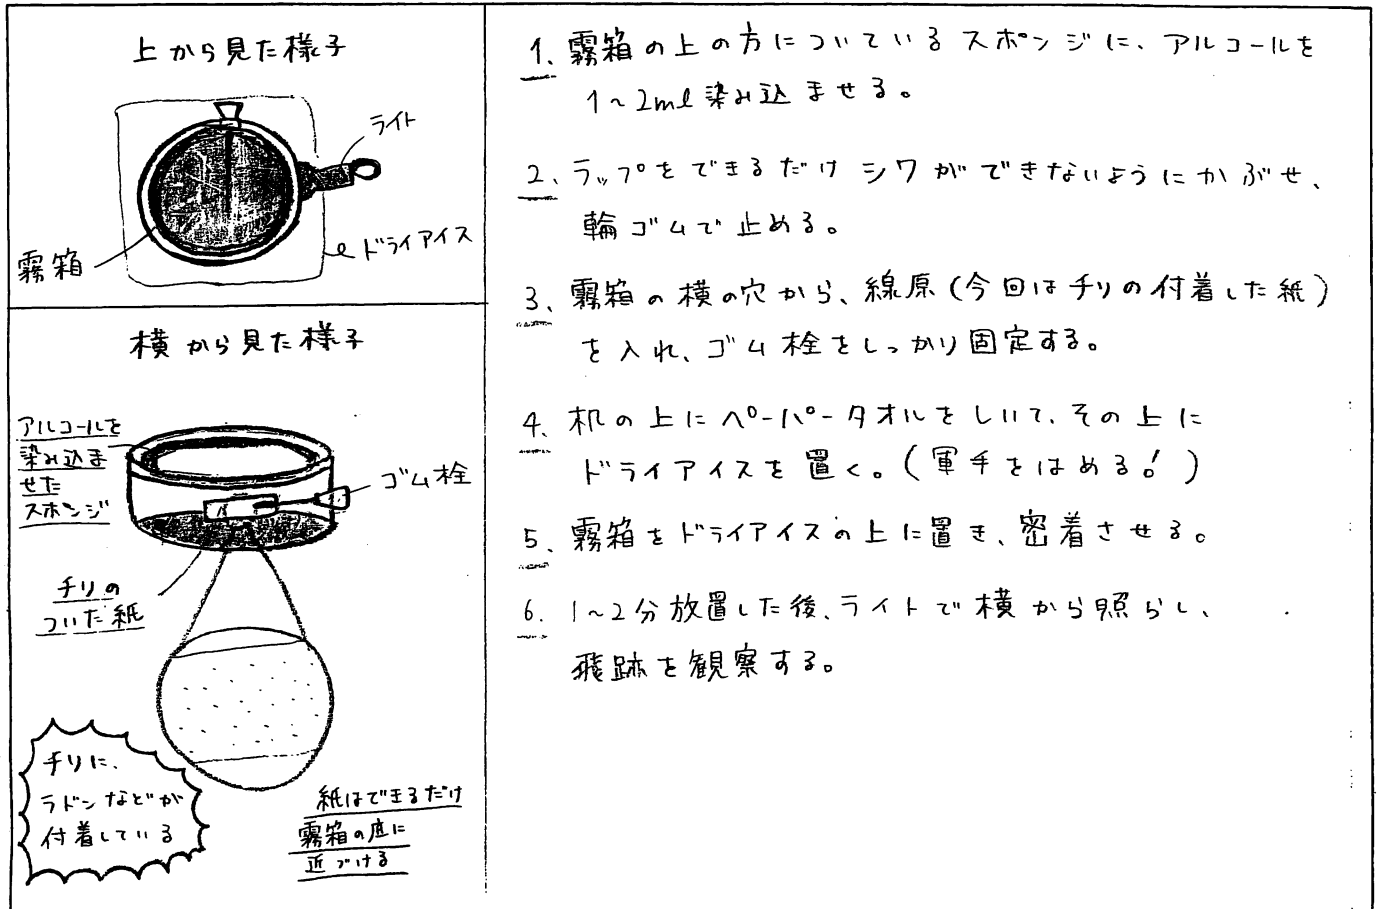 上から見た様子
ライト
ドライアイス
霧箱
横から見た様子
アルコールを
染み込ま
せた
スポンジ
ゴム栓
チリの
ついた紙
チリに、
ラドンなどが
付着している
紙はできるだけ
霧箱の底に
近づける
1. 霧箱の上の方についているスポンジに、アルコールを
1~2ml染み込ませる。
2. ラップをできるだけシワができないようにかぶせ、
輪ゴムで止める。
3. 霧箱の横の穴から、線原(今回はチリの付着した紙)
を入れ、ゴム栓をしっかり固定する。
4. 机の上にペーパータオルをしいて、その上に
ドライアイスを置く。(軍手をはめる!)
5. 霧箱をドライアイスの上に置き、密着させる。
6. 1~2分放置した後、ライトで横から照らし、
飛跡を観察する。